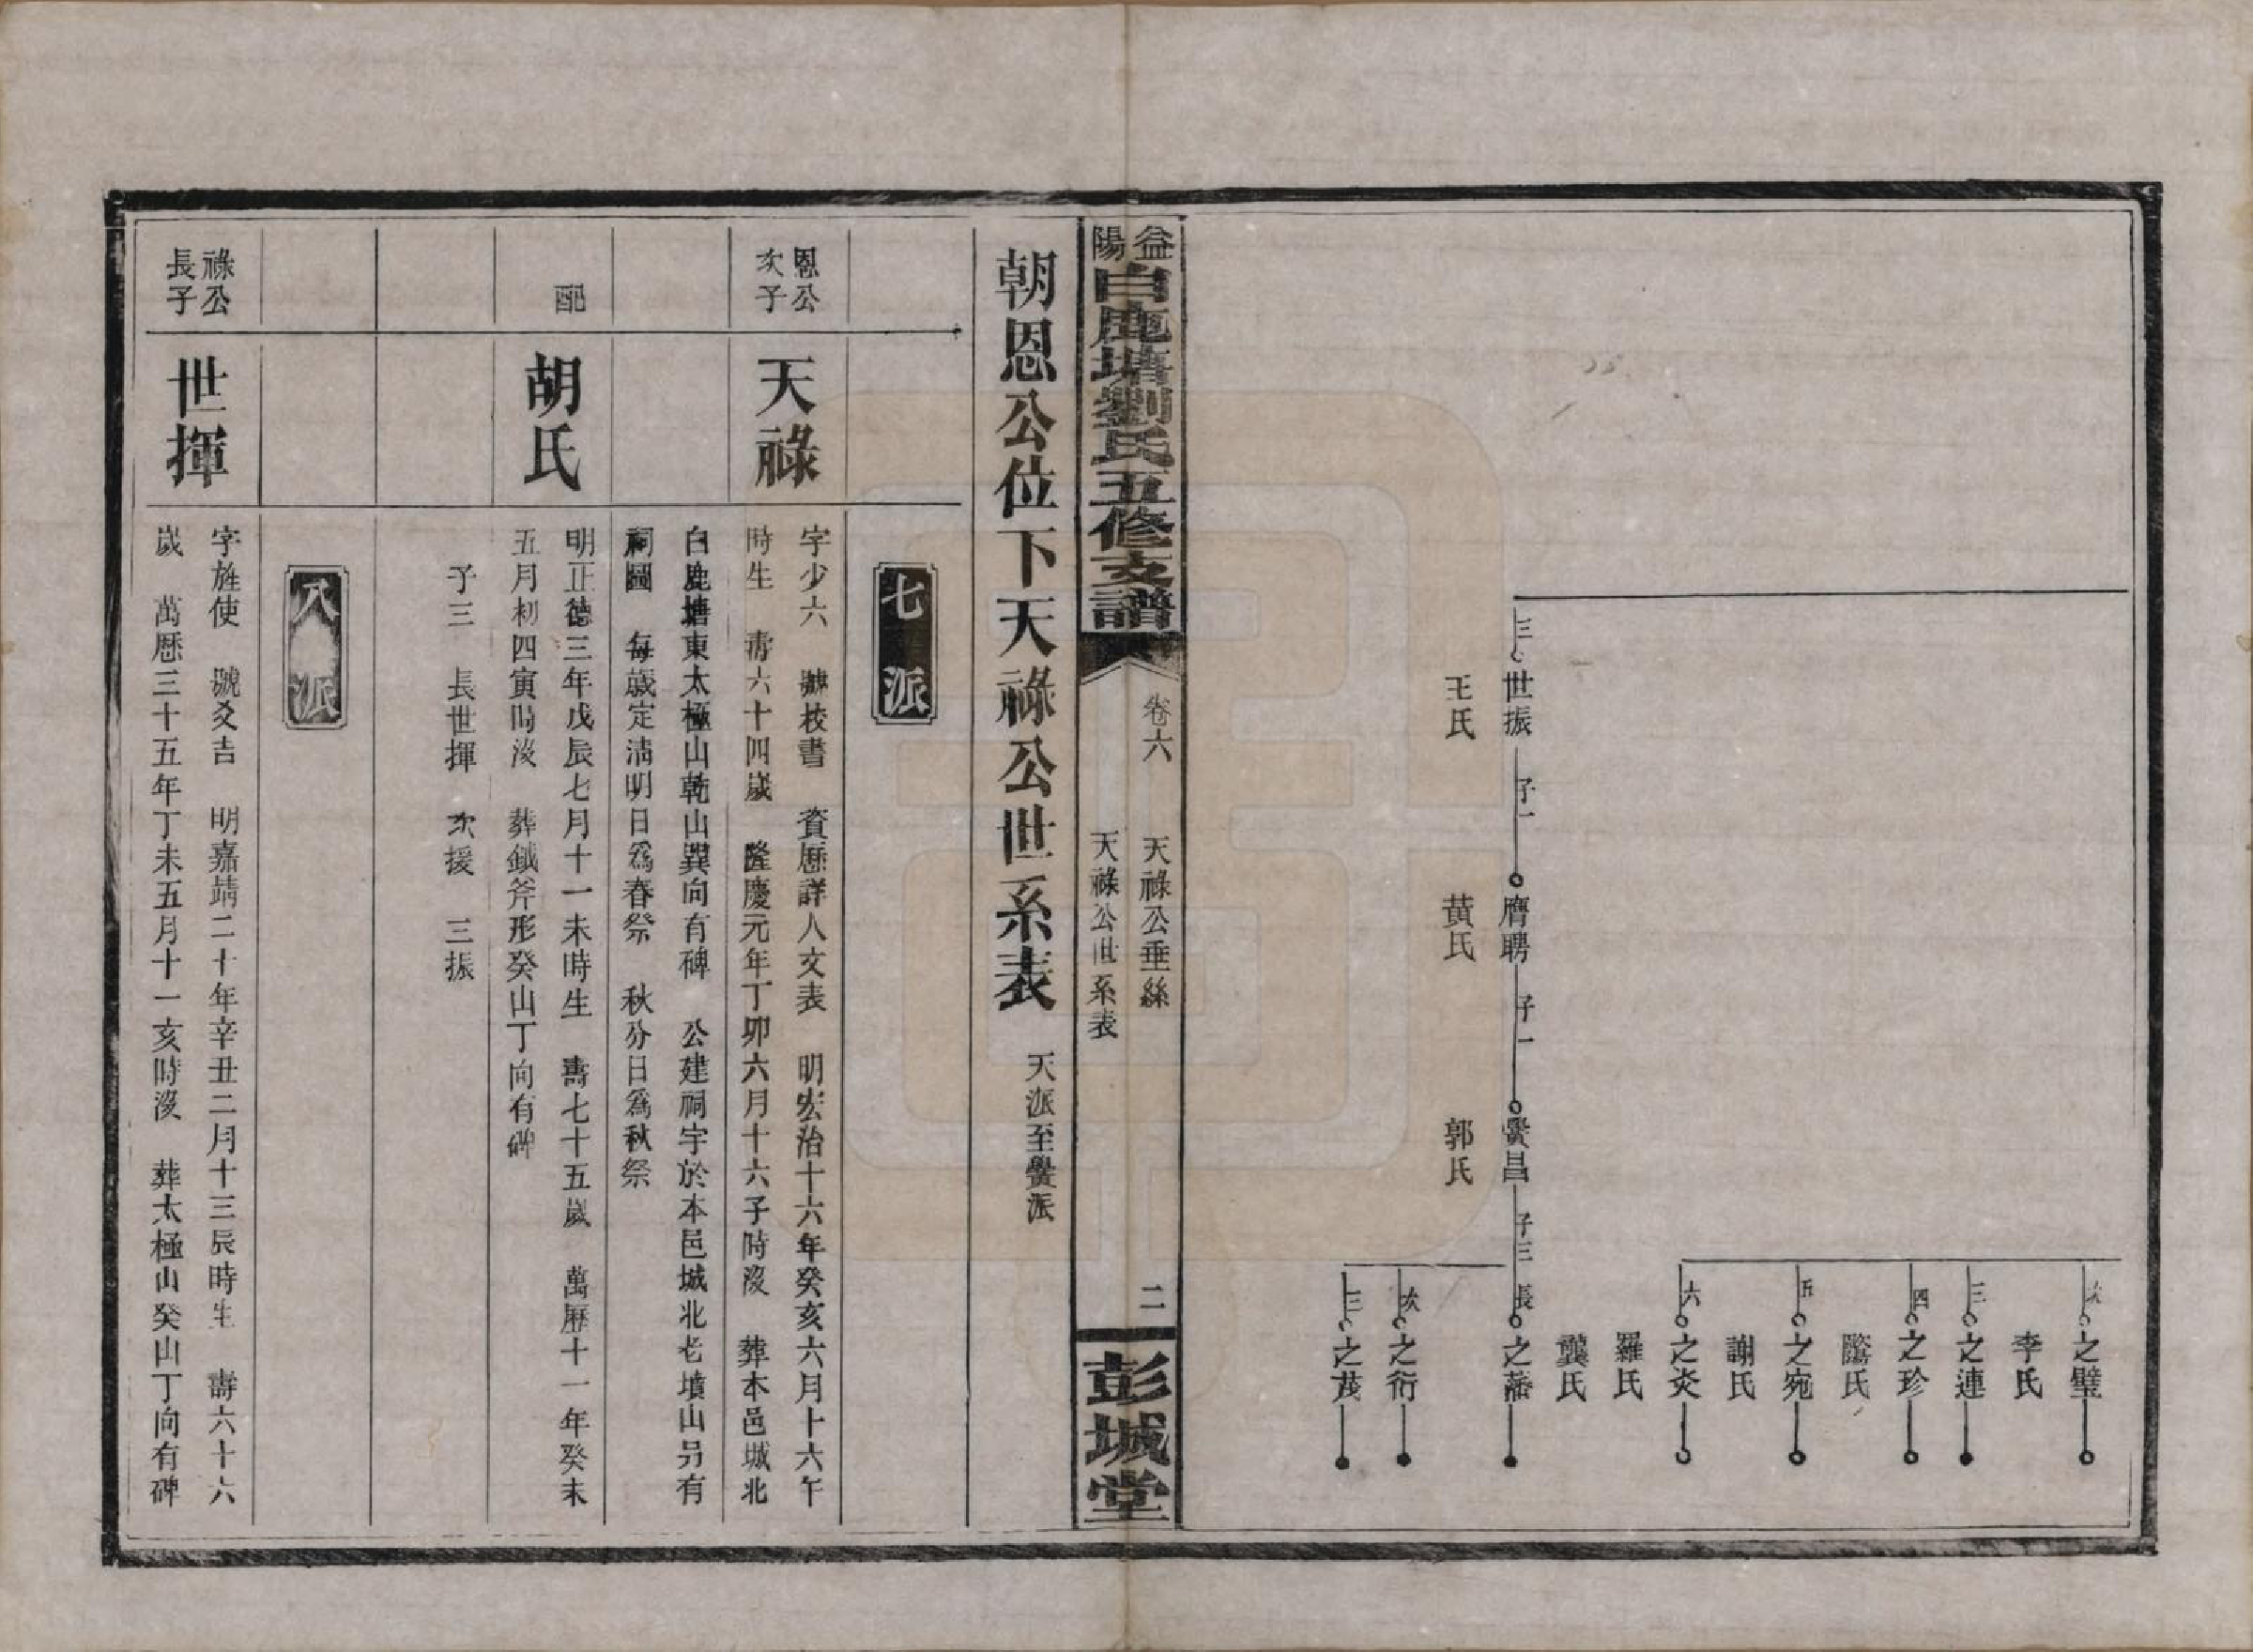 次 之璧
李氏
三 之連
四 之珍
五 之宛
謝氏
六 之炎
羅氏
龔氏
三 世振 子一 膺聘 子一 黌昌 子三 長 之藩
王氏 黃氏 郭氏
次 之衍
三 之茂
益陽白鹿塘劉氏五修支譜
卷六 天祿公垂絲
天祿公世系表
二
彭城堂
朝恩公位下天祿公世系表 天派至黌派
七派
恩公次子
天祿
字少六 號校書 資歷詳人文表 明宏治十六年癸亥六月十六午
時生 壽六十四歲 隆慶元年丁卯六月十六子時沒 葬本邑城北
白鹿塘東太極山乾山巽向有碑 公建祠宇於本邑城北老墳山另有
祠圖 每歲定淸明日爲春祭 秋分日爲秋祭
配
胡氏
明正德三年戊辰七月十一未時生 壽七十五歲 萬歷十一年癸未
五月初四寅時沒 葬鉞斧形癸山丁向有碑
子三 長世揮 次援 三振
八派
祿公長子
世揮
字旌使 號爻吉 明嘉靖二十年辛丑二月十三辰時生 壽六十六
歲 萬歷三十五年丁未五月十一亥時沒 葬太極山癸山丁向有碑